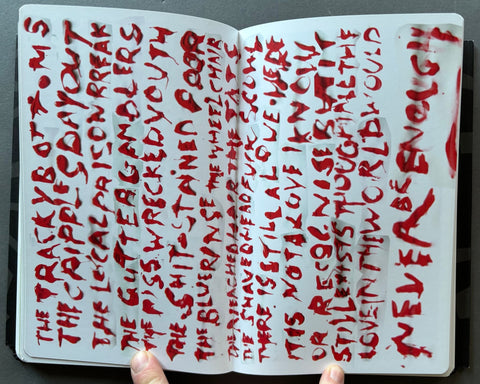 THE TRACKYBOTTOMS
THE DAYOUT
THE LOCAL PRISON BREAK
THE GUTTERGAMBLERS
THE PISS WRECKED YOUTH
THE SHIT STAINED POOR
THE BLUERINSE THE WHEELCHAIR
THE BLEACHED HAIR THE TATS
THE SHAVED HEAD
THERE IS STILL A LOVE HERE
IT IS NOT A LOVE I KNOW
OR RECOGNISE BUT IT
STILL EXISTS THOUGH ALL THE
LOVE IN THE WORLD WOULD
NEVER BE ENOUGH